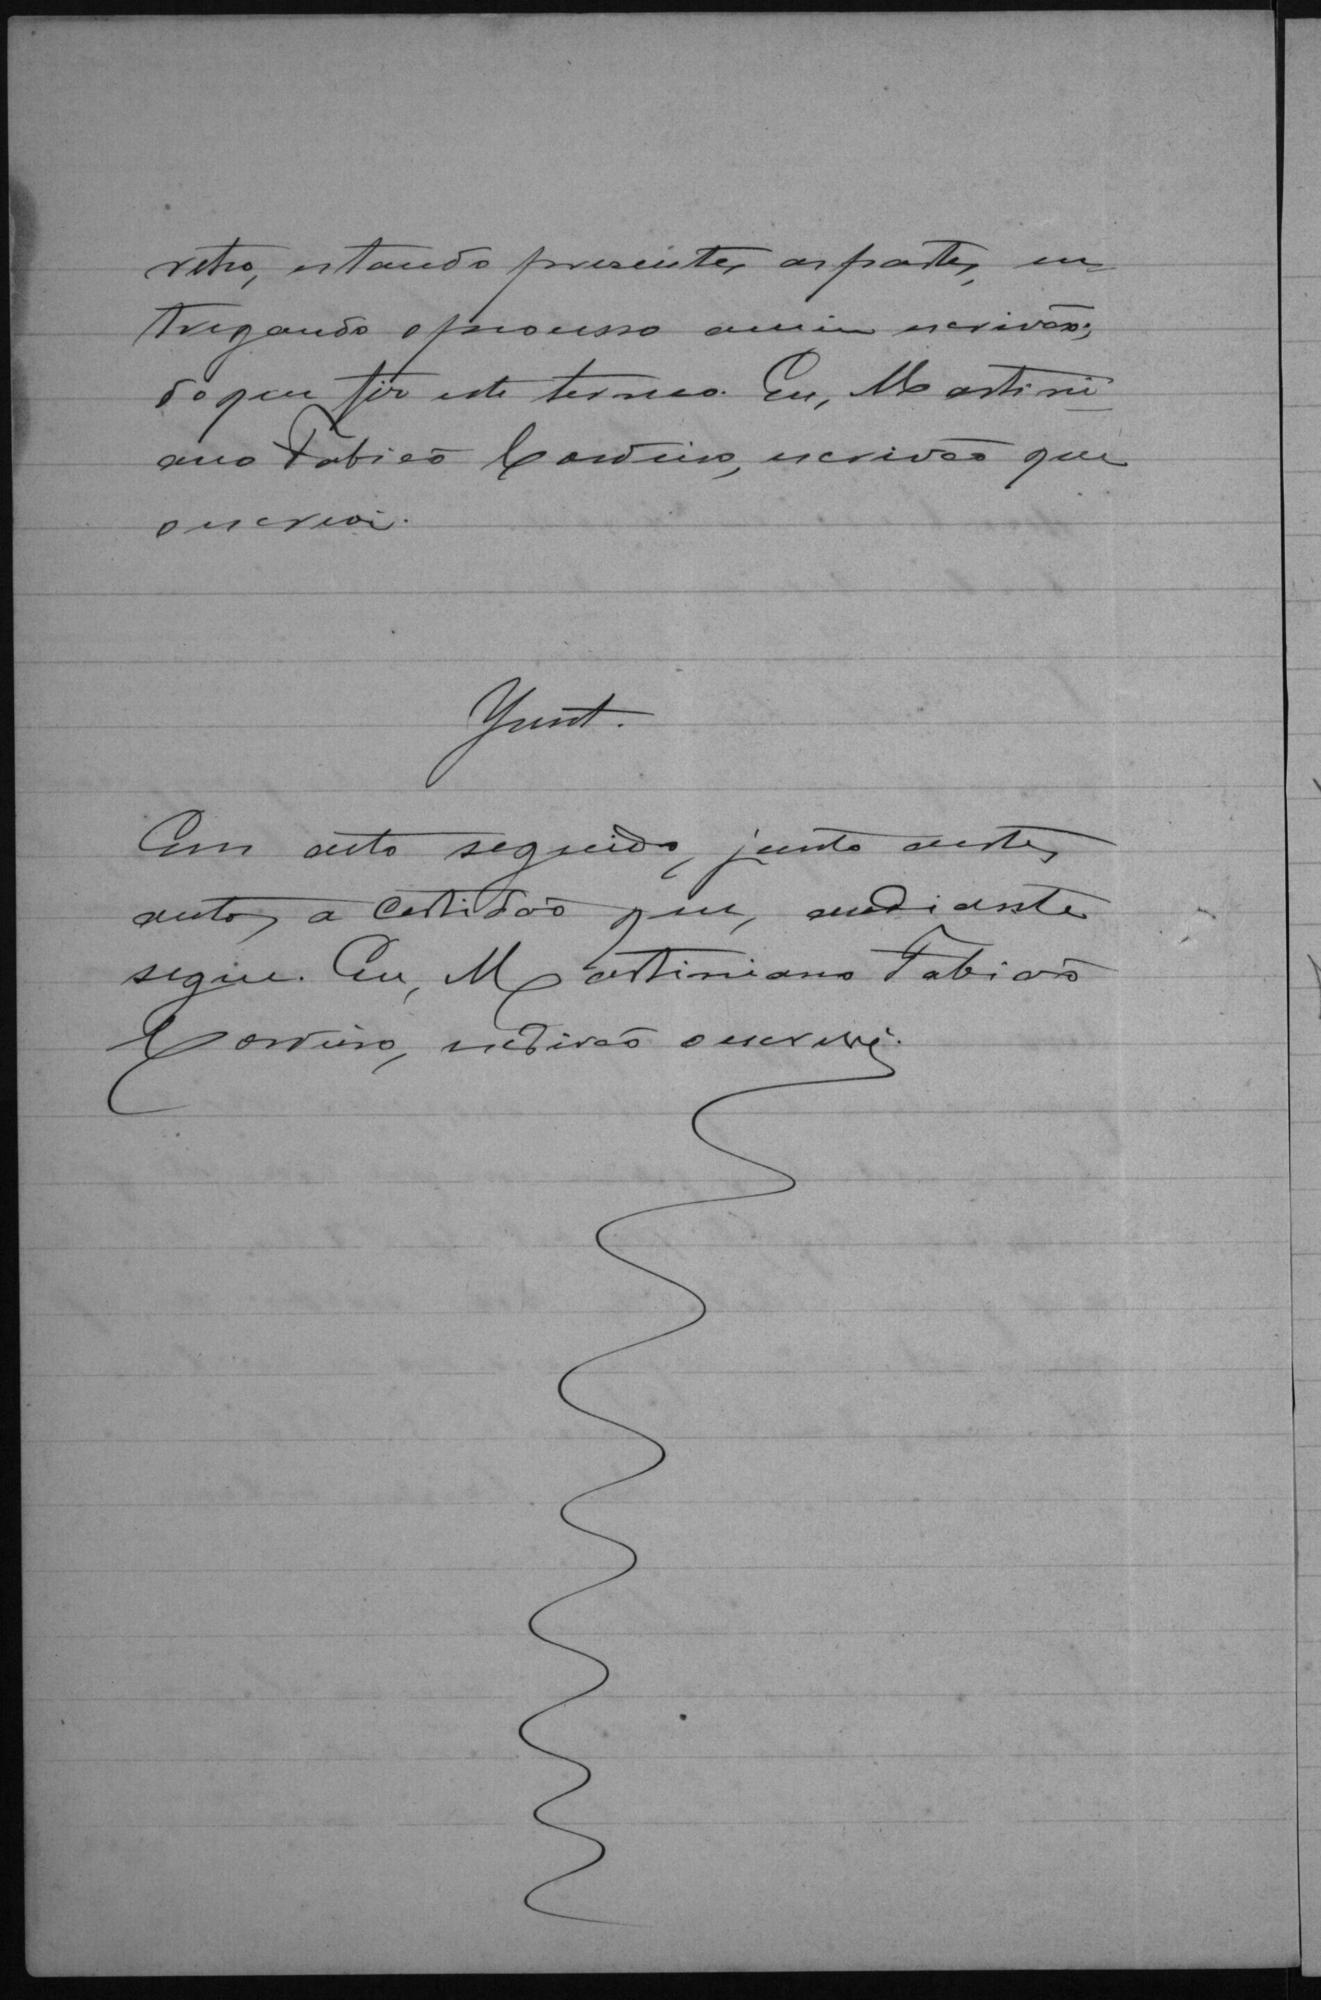 retro, estando presentes as partes, en-
tregando o processo a mim escrivão;
do que fiz este termo. Eu, Martini-
ano Fabião Cordeiro, escrivão que
o escrevi.
Junt.
Em acto seguido, junto a estes
autos a certidão que, adiante
segue. Eu, Martiniano Fabião
Cordeiro, escrivão o escrevi.